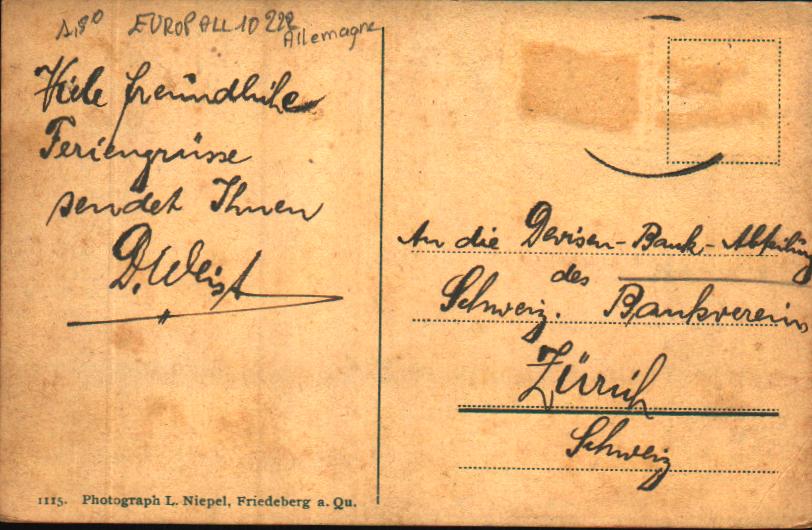 1,80 EUROP ALL 10 222
Allemagne
Viele freundliche
Feriengrüsse
sendet Ihnen
D. Weist
An die Devisen-Bank-Abteilung
des
Schweiz. Bankverein
Zürich
Schweiz
1115. Photograph L. Niepel, Friedeberg a. Qu.